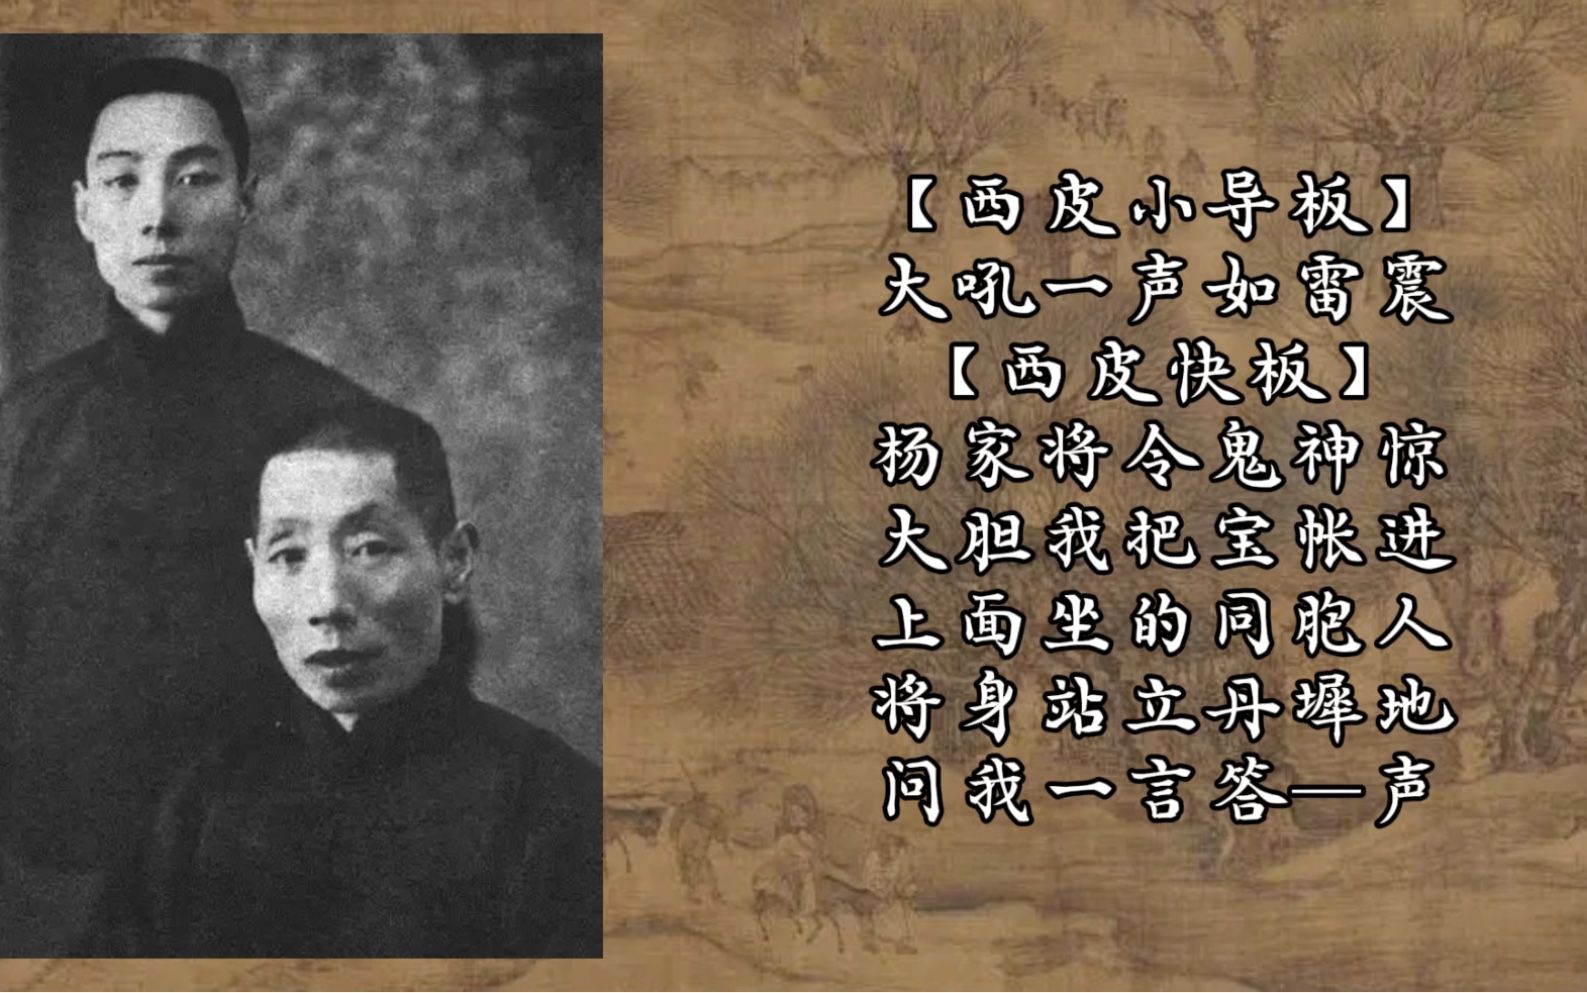 【西皮小导板】
大吼一声如雷震
【西皮快板】
杨家将令鬼神惊
大胆我把宝帐进
上面坐的同胞人
将身站立丹墀地
问我一言答一声